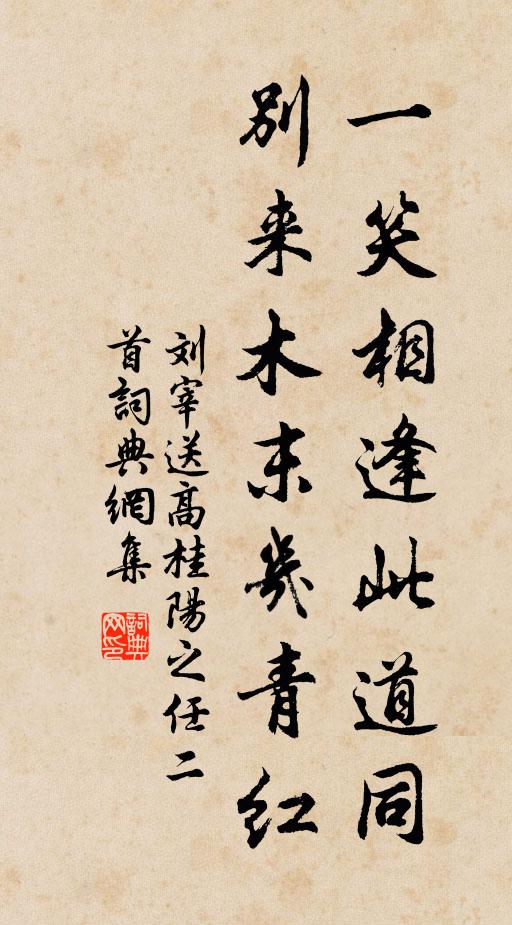 一笑相逢此道同
别来木末几青红
刘宰送高桂陽之任二
首詞典網集
詞典网印